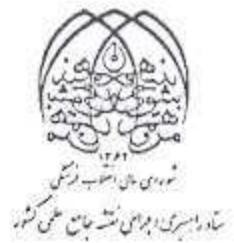 ۱۳۶۲
شورای عالی انقلاب فرهنگی
ستاد راهبری اجرای نقشه جامع علمی کشور